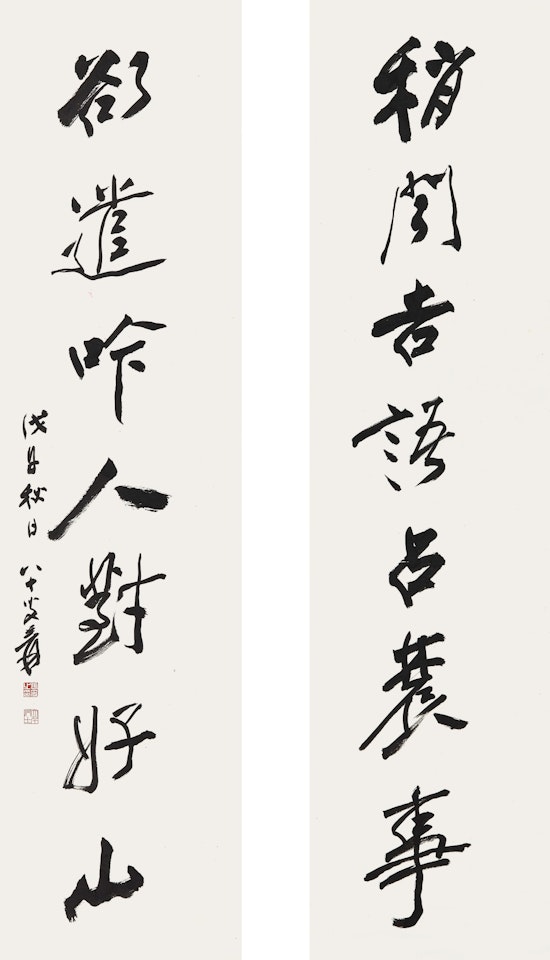 稍聞吉語占農事
欲遣吟人對好山
戊午秋日 八十叟爰